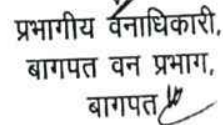 प्रभागीय वनाधिकारी,
बागपत वन प्रभाग,
बागपत